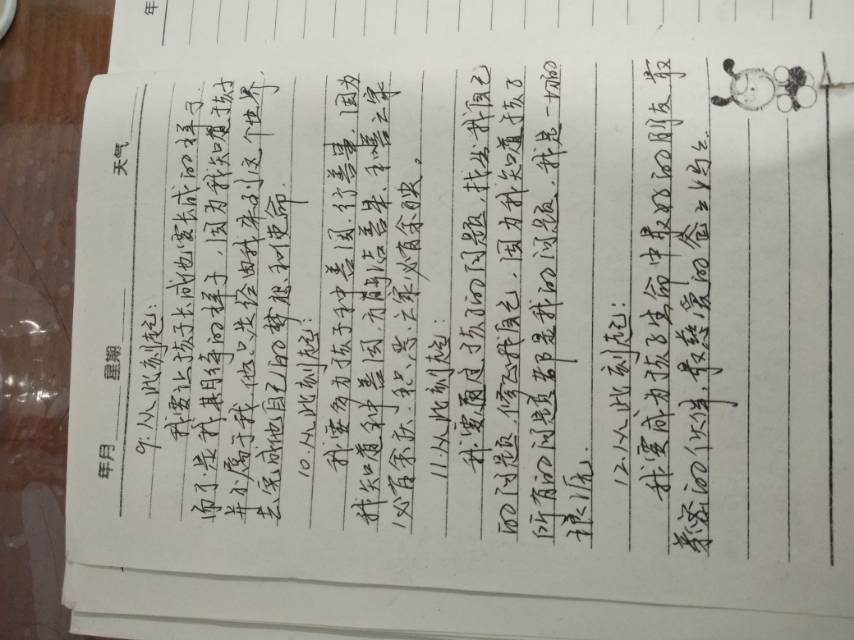 年
年月 星期 天气
9.从此刻起：
我要让孩子长成他要长成的样子
而不是我期待的样子，因为我知道孩子
并不属于我，他只是经由我来到这个世界，
去完成他自己的梦想和使命.
10.从此刻起：
我要多为孩子种善因，行善事，因为
我知道种善因，方能结善果，积善之家
必有余庆，积恶之家必有余殃。
11.从此刻起：
我要通过孩子的问题，找出我自己
的问题，修正我自己，因为我知道孩子
所有的问题都是我的问题，我是一切的
根源.
12.从此刻起：
我要成为孩子生命中最好的朋友，最
亲密的伙伴，最慈爱的爸爸妈妈.